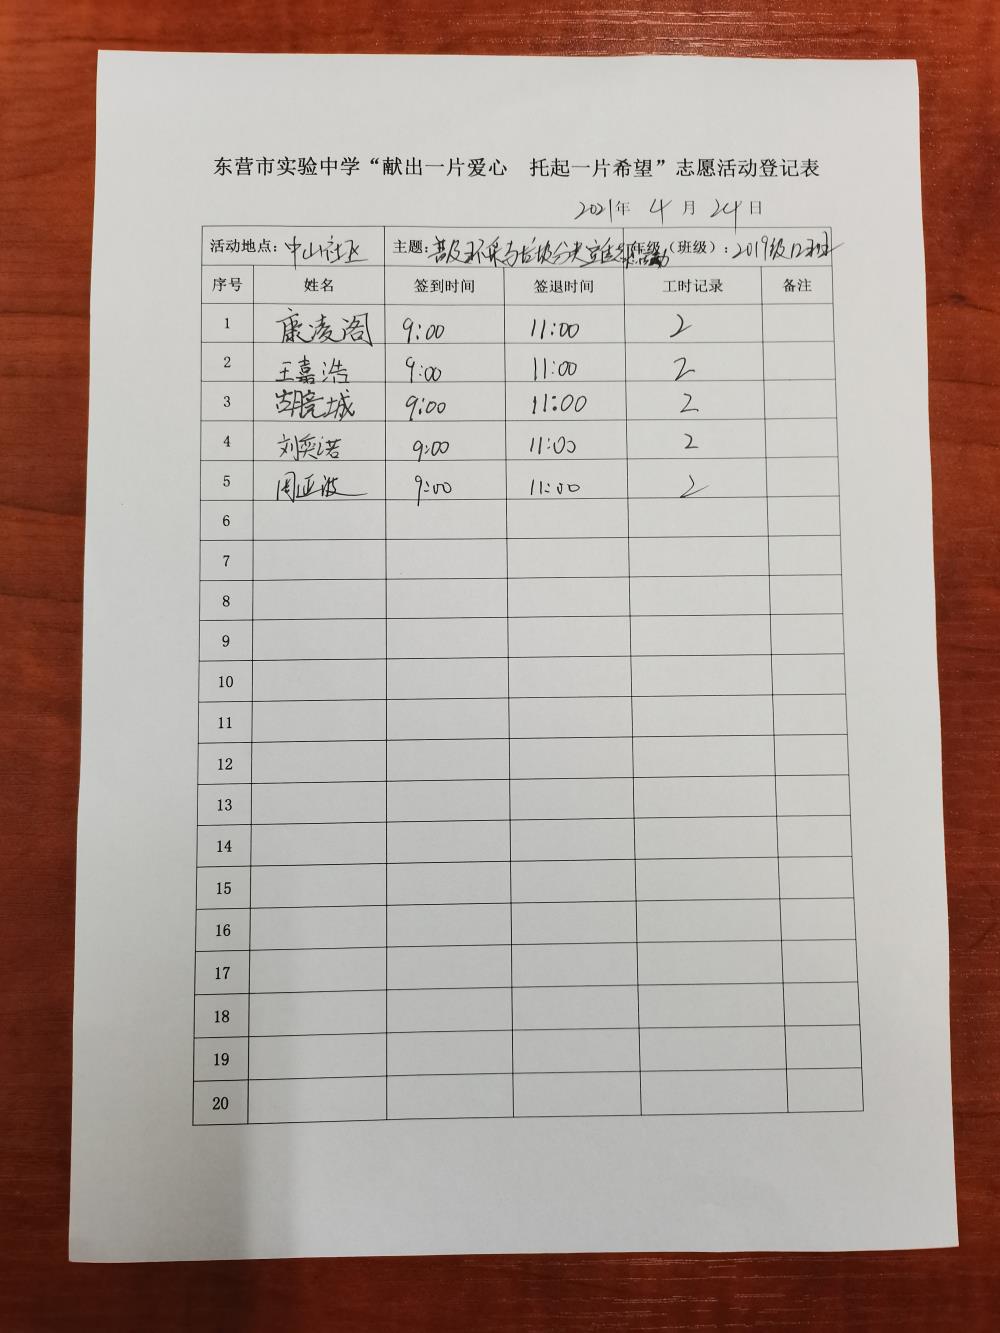 东营市实验中学“献出一片爱心 托起一片希望”志愿活动登记表
2021年 4 月 24 日
活动地点：中山社区 主题：普及环保与垃圾分类宣传志愿活动 年级（班级）：2019级12班
序号 姓名 签到时间 签退时间 工时记录 备注
1 康凌阁 9:00 11:00 2
2 王嘉浩 9:00 11:00 2
3 城 9:00 11:00 2
4 刘奕诺 9:00 11:00 2
5 周亚波 9:00 11:00 2
6
7
8
9
10
11
12
13
14
15
16
17
18
19
20